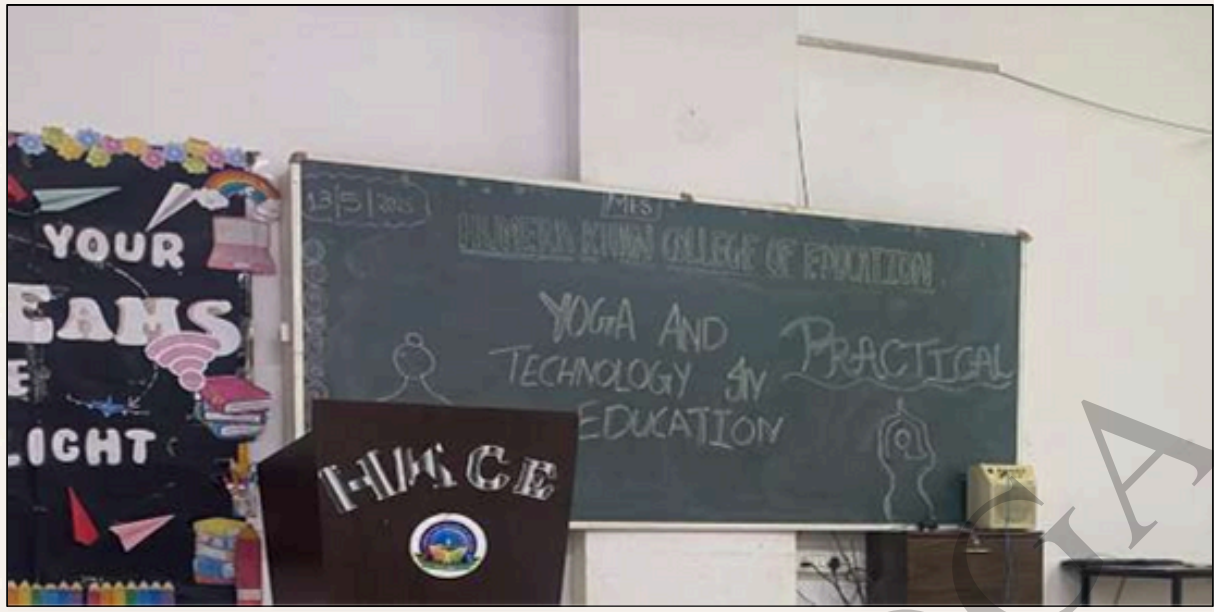 YOUR
EAMS
E
LIGHT
13/5/2025
MES
HUMERA KHAN COLLEGE OF EDUCATION
YOGA AND
TECHNOLOGY IN
EDUCATION
PRACTICAL
HKCE
GA